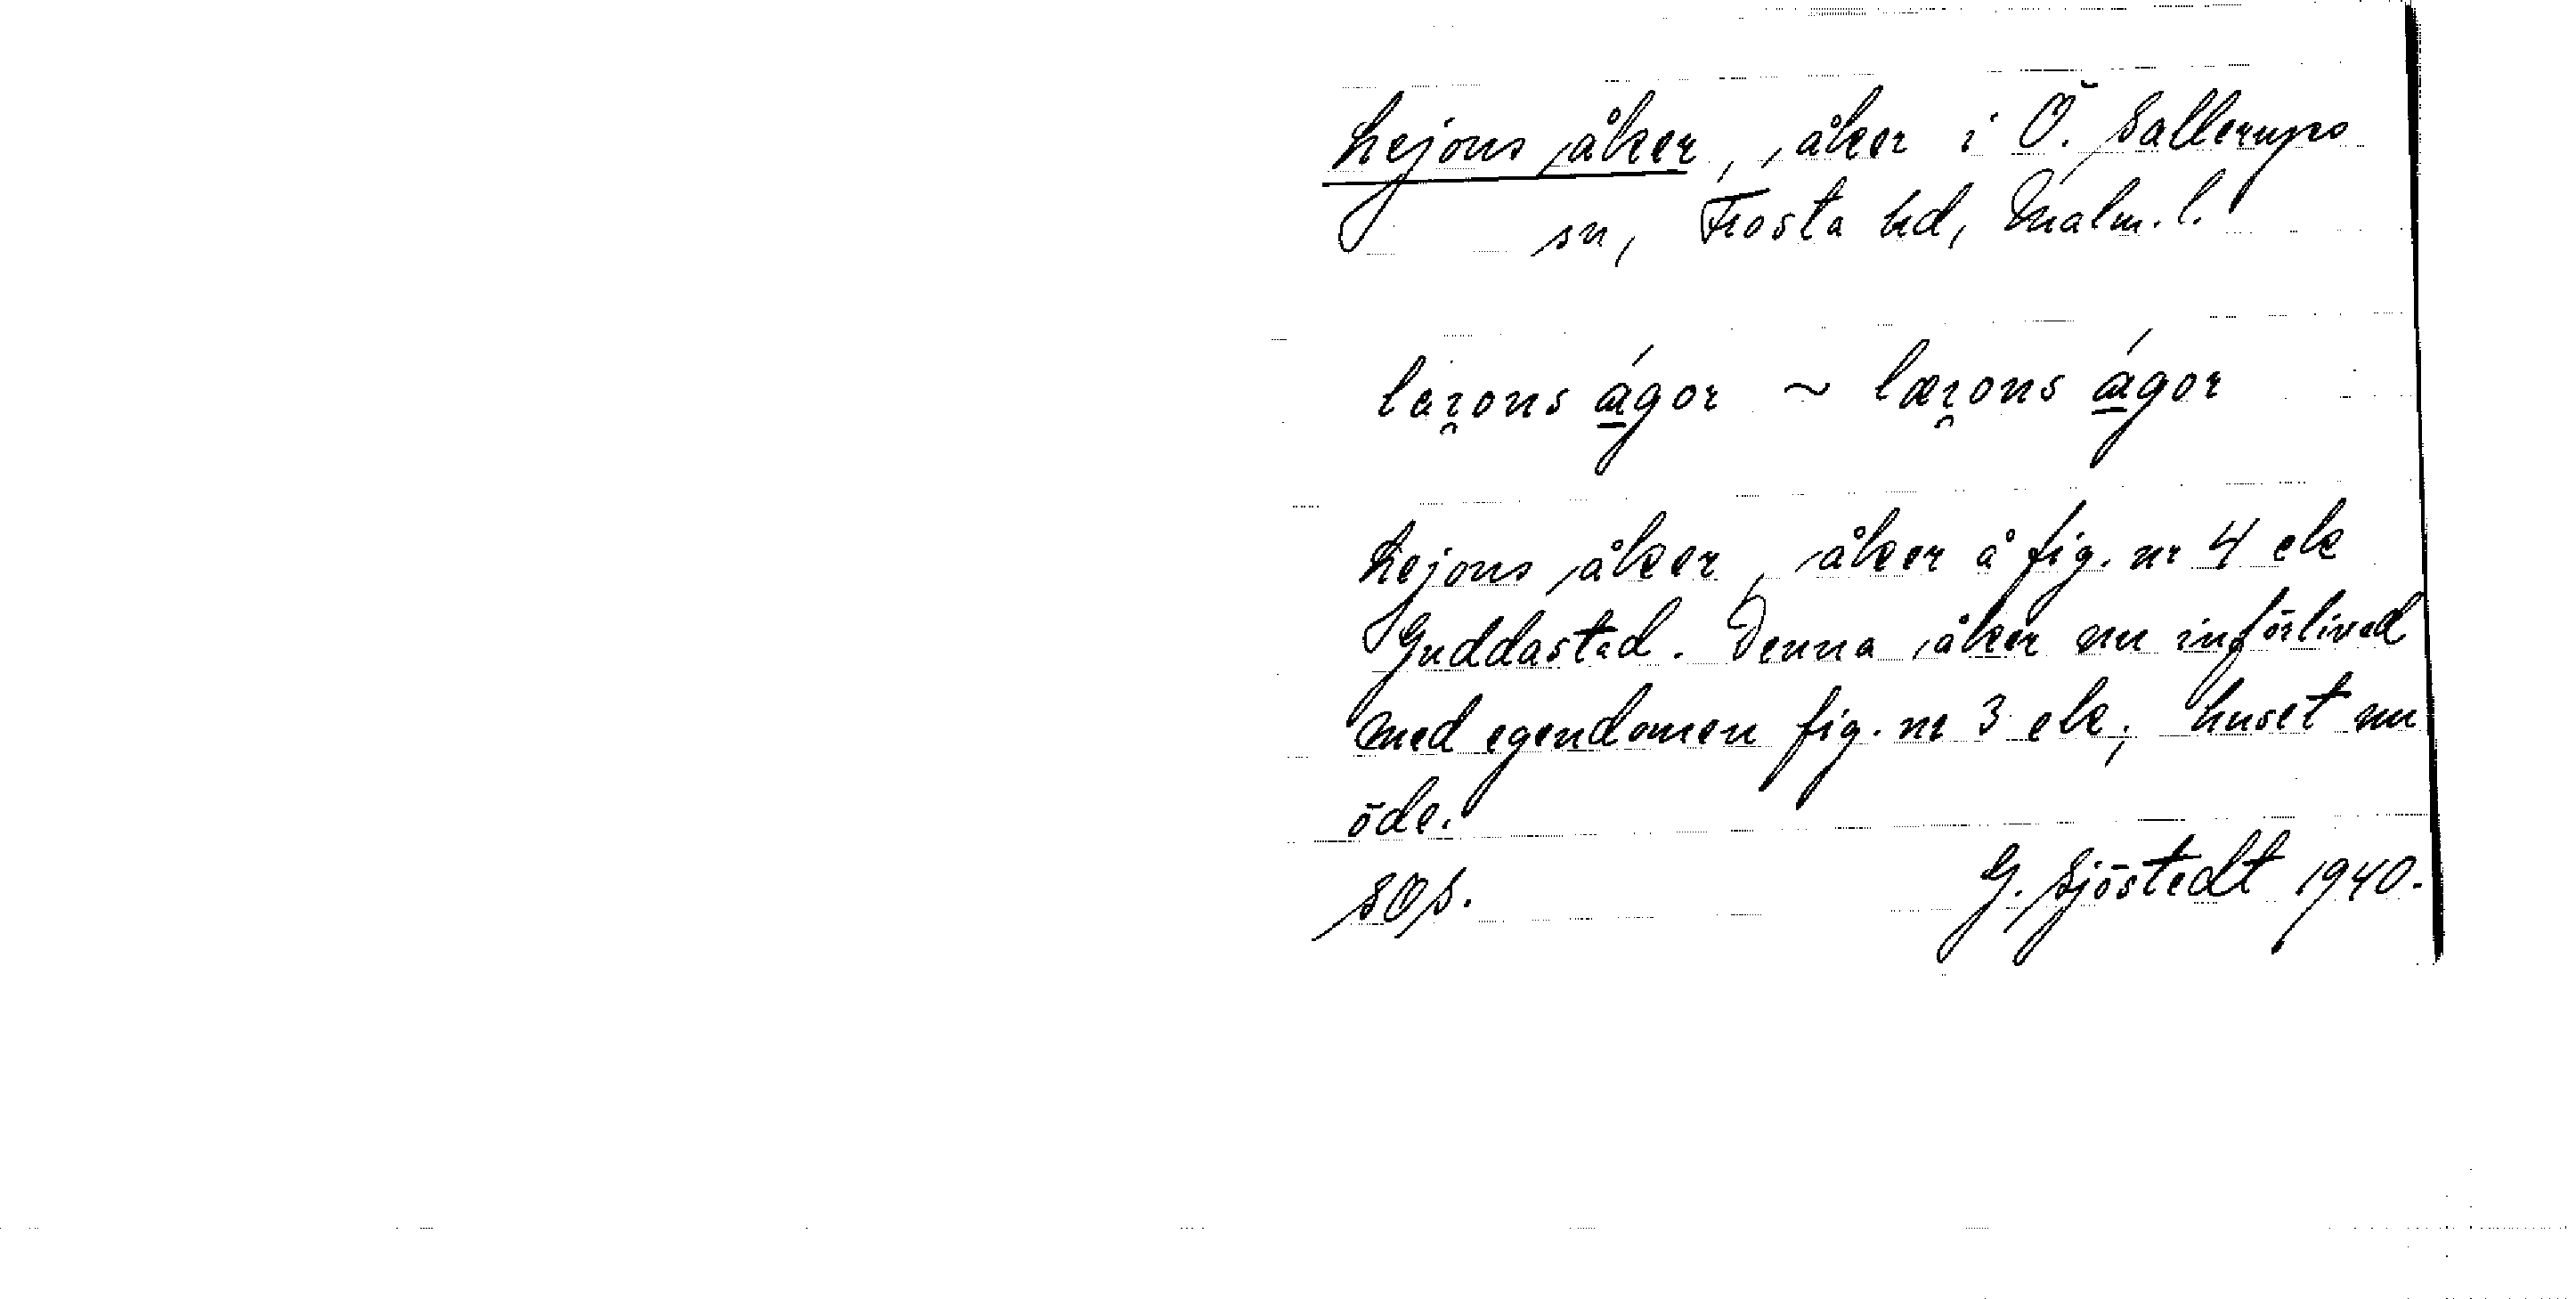 Lejons åker, åker i Ö. Sallerups
sn, Frosta hd, Malm. l.
leɿ̯ons á̱gor ~ læɿ̯ons á̱gor
Lejons åker, åker å fig. nr 4 ek
Guddastad. Denna åker nu införlivad
med egendomen fig. nr 3 ek; huset nu
öde.
SOS. G. Sjöstedt 1940.